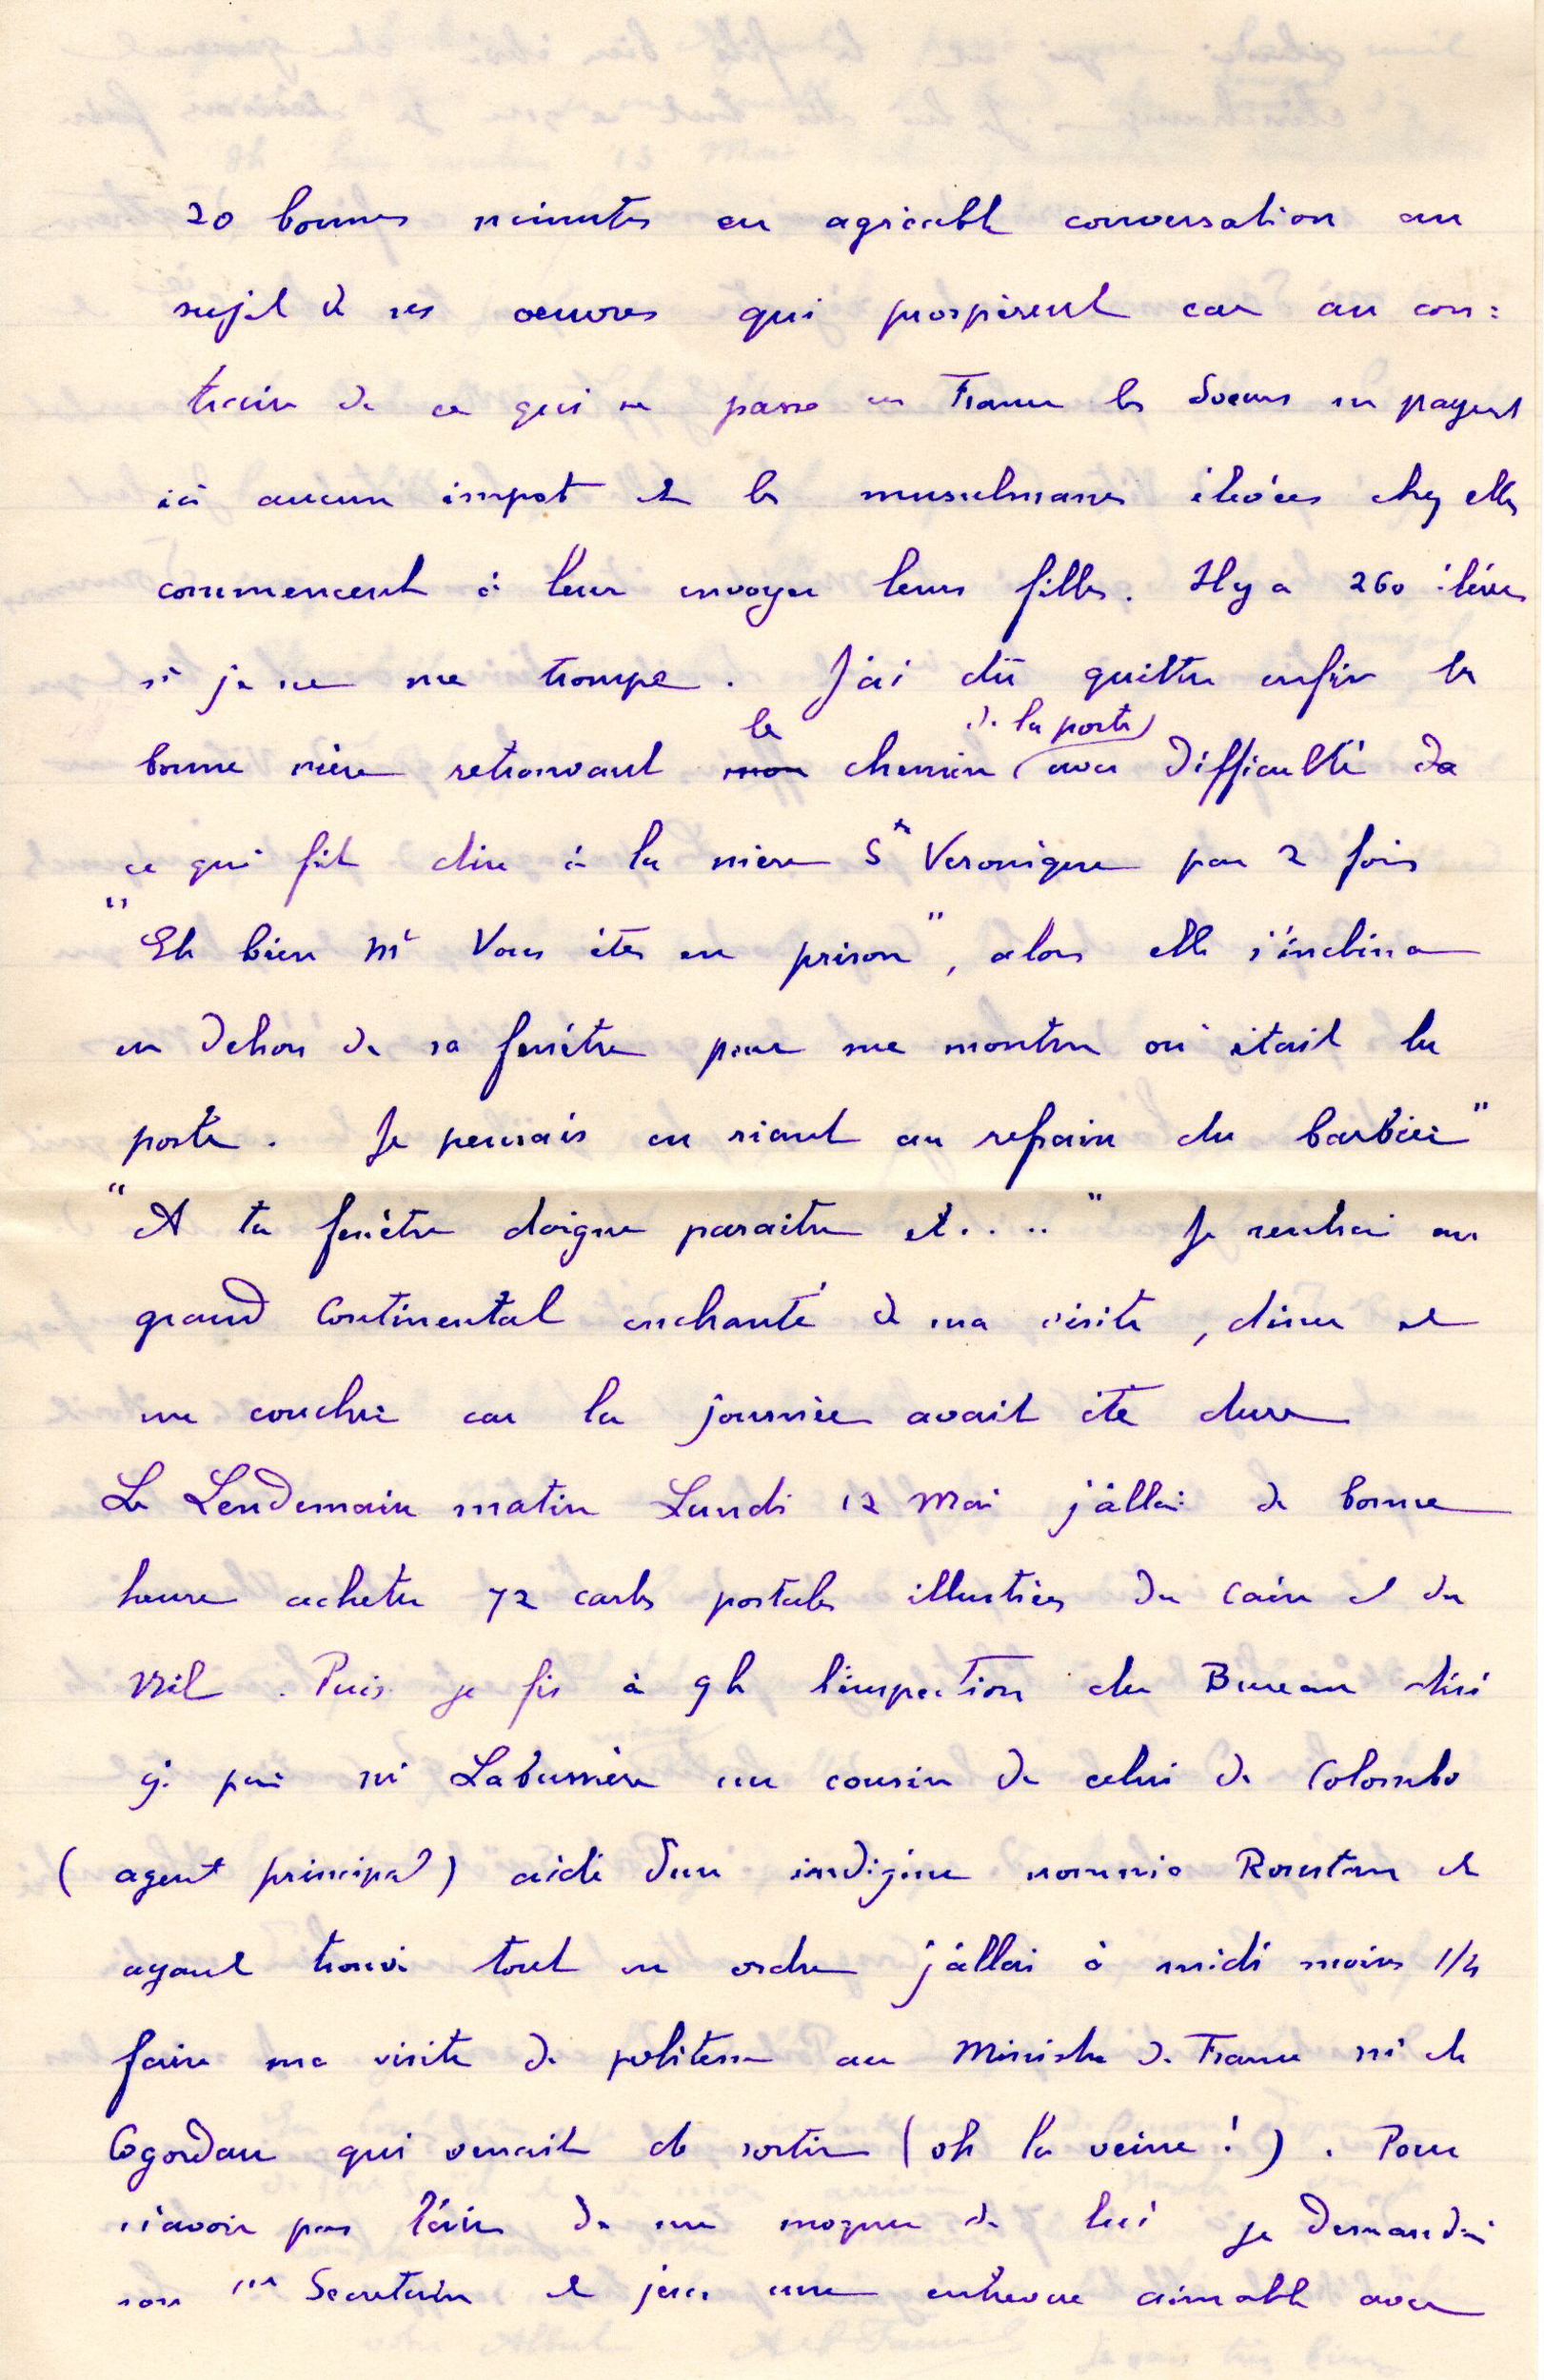 20 bonnes minutes en agréable conversation au
sujet de ses oeuvres qui prospèrent car au con=
traire de ce qui se passe en France les Soeurs ne payent
ici aucun impot et les musulmanes élevées chez elles
commencent à leur envoyer leurs filles. Il y a 260 élèves
si je ne me trompe. J'ai dû quitter enfin la
bonne mère retrouvant mon le chemin (de la porte) avec difficulté
ce qui fit dire à la mère Ste Veronique par 2 fois
"Eh bien Mr Vous êtes en prison", alors elle s'inclina
en dehors de sa fenêtre pour me montrer où était la
porte. Je pensais en riant au refrain du barbier"
"A ta fenêtre daigne paraitre et...." Je rentrai au
grand Continental enchanté de ma visite, diner et
me coucher car la journée avait été dure
Le Lendemain matin Lundi 12 Mai j'allai de bonne
heure acheter 72 cartes postales illustrées du Caire et du
Nil. Puis je fis à 9h l'inspection du Bureau
par Mr Labussière un cousin de celui de Colombo
(agent principal) aidé d'un indigène nommé Roustan et
ayant trouvé tout en ordre j'allai à midi moins 1/4
faire ma visite de politesse au Ministre de France Mr de
Cogordan qui venait de sortir (oh la veine!). Pour
n'avoir pas l'air de me moquer de lui je demandai
son 1er Secretaire et j'eus une entrevue aimable avec